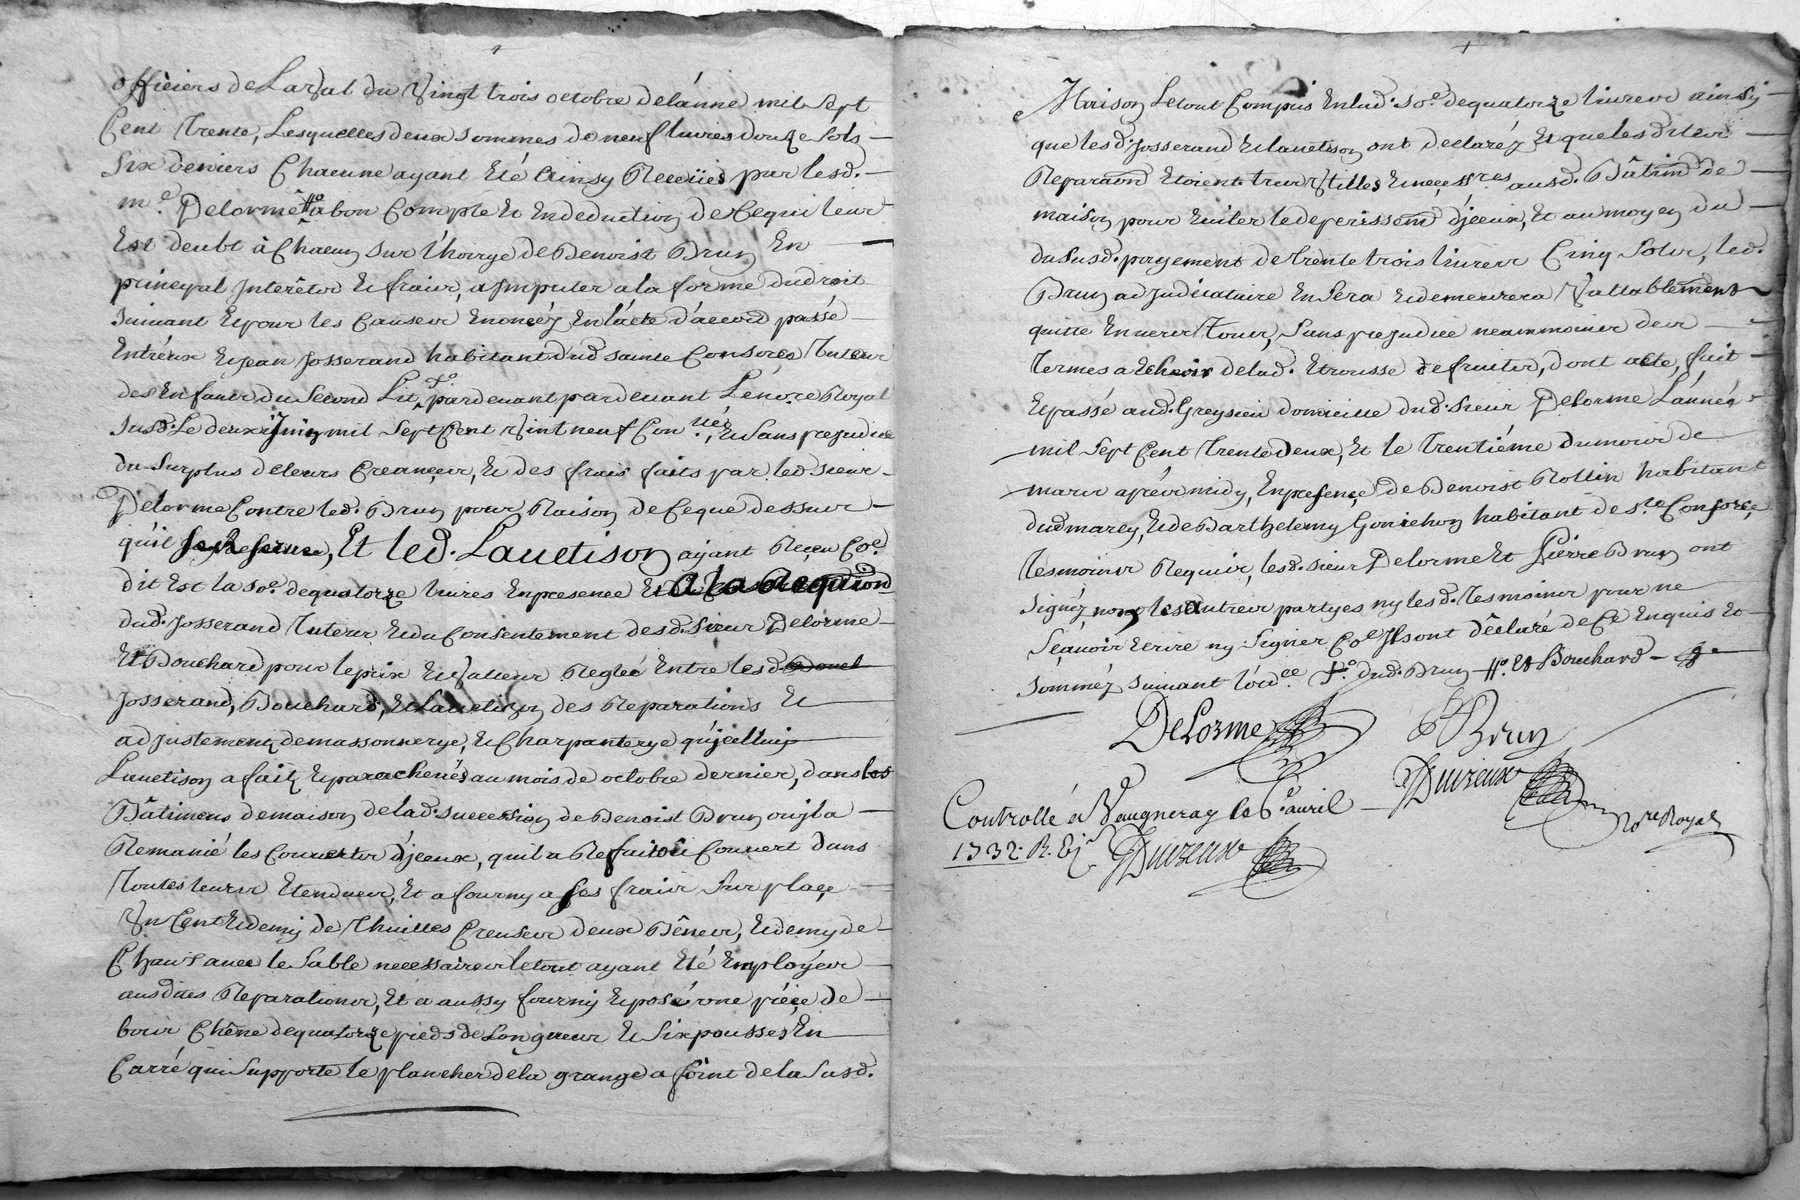 officiers de Larval du Vingt trois octobre de lánné mil Sept
Cent Trente, Lesquelles deux sommes de neuf livres douze sols
Six deniers Chacune ayant Eté Ainsy Receües par lesd.
m.e Delorme #o abon Compte Et En deduction de Ce qui leur
Est deubt à Chacun sur l'hoirye de Benoist Brun En
principal Interêtz & fraix, a Imputer a la forme du droit
Suivant & pour les Causes Enoncéz En lácte d'accord passé
Entréux & Jean Josserand habitant dud sainte Consorce Tuteur
des Enfants du Second Lit, pardevant pardevant Le no.re Royal
Susd. Le deux Juin mil Sept Cent Vint neuf Con.née, & Sans prejudice
du Surplus de leurs Creances, & des frais faits par led. sieur
Delorme Contre led. Brun pour Raison de Ce que dessus
qu'il se Reserve, Et led. Lavetison ayant Reçeu Co.e
dit Est la so.e de quatorze livres En presence Et a la Requi͠on
dud. Josserand Tuteur & du Consentement desd. Sieur Delorme
Et Bouchard pour le prix & Valleur Reglée Entre lesd. Bouch
Josserand, Bouchard, & Lavetison des Reparations Et
adjustements de massonnerye, & Charpanterye qu'jcelluy
Lavetison a fait & parachevés au mois de octobre dernier, dans les
Bâtimens de maison de lad. succession de Benoist Brun ou jl a
Remanié les Couverts d'jceux, qu'il a Refait à Couvert dans
Toutes leurs Etendues, Et a fourny a ses fraix sur place
Vn Cent & demy de Thuilles Creuses deux Bênes, & demy de
Chaux avec le Sable necessaires le tout ayant Eté Employés
ausdites Reparations, Et a aussy fourny & posé vne piéce de
bois Chêne de quatorze pieds de Longueur & Six pousses En
Carré qui Supporte le plancher de la grange a foint de la Susd.
Maison Le tout Compris En lad. so.e de quatorze livres ainsy
que lesd. Josserand & Lavetison ont declaréz & que lesdites
Reparaõns Etoient tres Vtilles & necess.res ausd. Bâtim̃ de
maison pour Eviter le deperissem̃ d'jceux, Et au moyen du
du Susd. payement de trente trois livres Cinq Sols, led.
Brun adjudicataire En Sera & demeurera Vallablement
quitte Envers Tous, Sans prejudice neammoins des
Termes a Echoir de lad. Etrousse de fruits, dont acte, fait
& passé aud. Greysieu domicille dud. Sieur Delorme Lánnée
mil Sept Cent Trente deux, Et le Trentiéme du mois de
mars aprés midy, En presence de Benoist Rollin habitant
dud marcy, & de Barthelemy Gonichon habitant de S.te Consorce
Tesmoins Requis, lesd. sieur Delorme Et Pierre Brun ont
Signéz, non les autres partyes ny lesd. Tesmoins pour ne
Sçavoir Ecrire ny Signer Co.e Ils ont dêclaré de Ce Enquis &
Sommés suivant l'ord.ce +o dud. Brun #o Et Bouchard
DeLorme P Brun
Duvreux
No.re Royal
Controllé a Vaugneray le 6.e avril
1732. R.
Duvreux